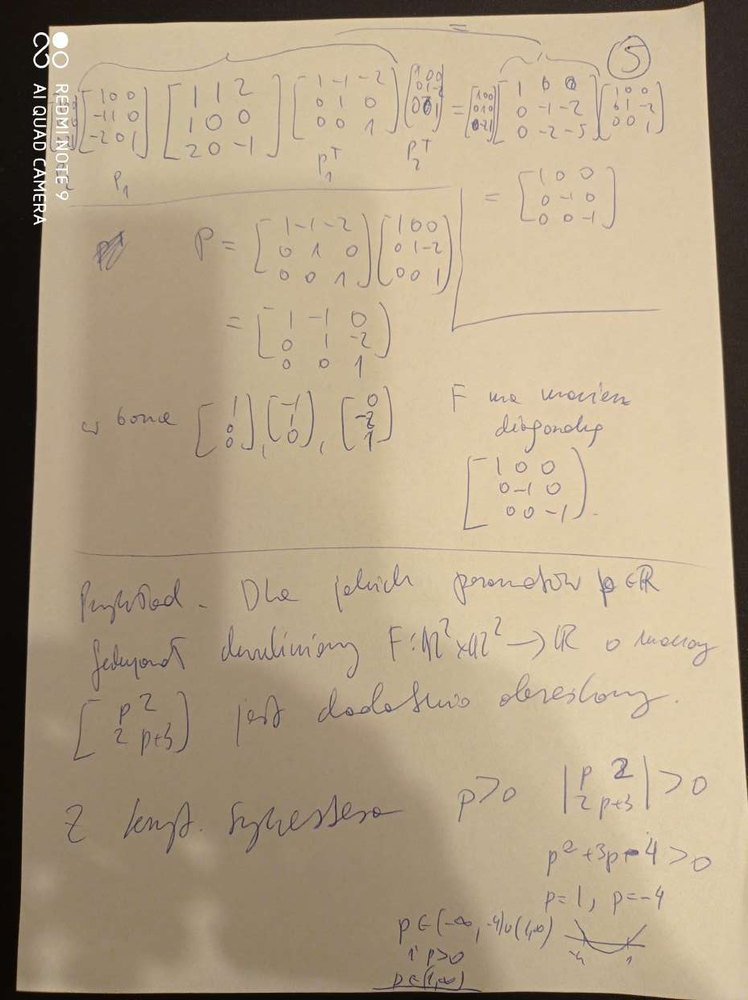 REDMI NOTE 9
AI QUAD CAMERA
5
=
[1 0 0 / -1 1 0 / -2 0 1] [1 1 2 / 1 0 0 / 2 0 -1] [1 -1 -2 / 0 1 0 / 0 0 1] [1 0 0 / 0 1 -2 / 0 0 1] = [1 0 0 / 0 1 0 / 0 -2 1] [1 0 0 / 0 -1 -2 / 0 -2 -5] [1 0 0 / 0 1 -2 / 0 0 1]
P₁ P₁ᵀ P₂ᵀ
= [1 0 0 / 0 -1 0 / 0 0 -1]
P = [1 -1 -2 / 0 1 0 / 0 0 1] [1 0 0 / 0 1 -2 / 0 0 1]
= [1 -1 0 / 0 1 -2 / 0 0 1]
w bazie [1 / 0 / 0], [-1 / 1 / 0], [0 / -2 / 1]
F ma macierz
diagonalną
[1 0 0 / 0 -1 0 / 0 0 -1].
Przykład. Dla jakich parametrów p ∈ ℝ
funkcjonał dwuliniowy F: ℝ² × ℝ² → ℝ o macierzy
[p 2 / 2 p+3] jest dodatnio określony.
Z kryt. Sylvestera p > 0 |p 2 / 2 p+3| > 0
p² + 3p - 4 > 0
p = 1, p = -4
p ∈ (-∞, -4) ∪ (1, ∞)
-4 1
i p > 0
p ∈ (1, ∞)